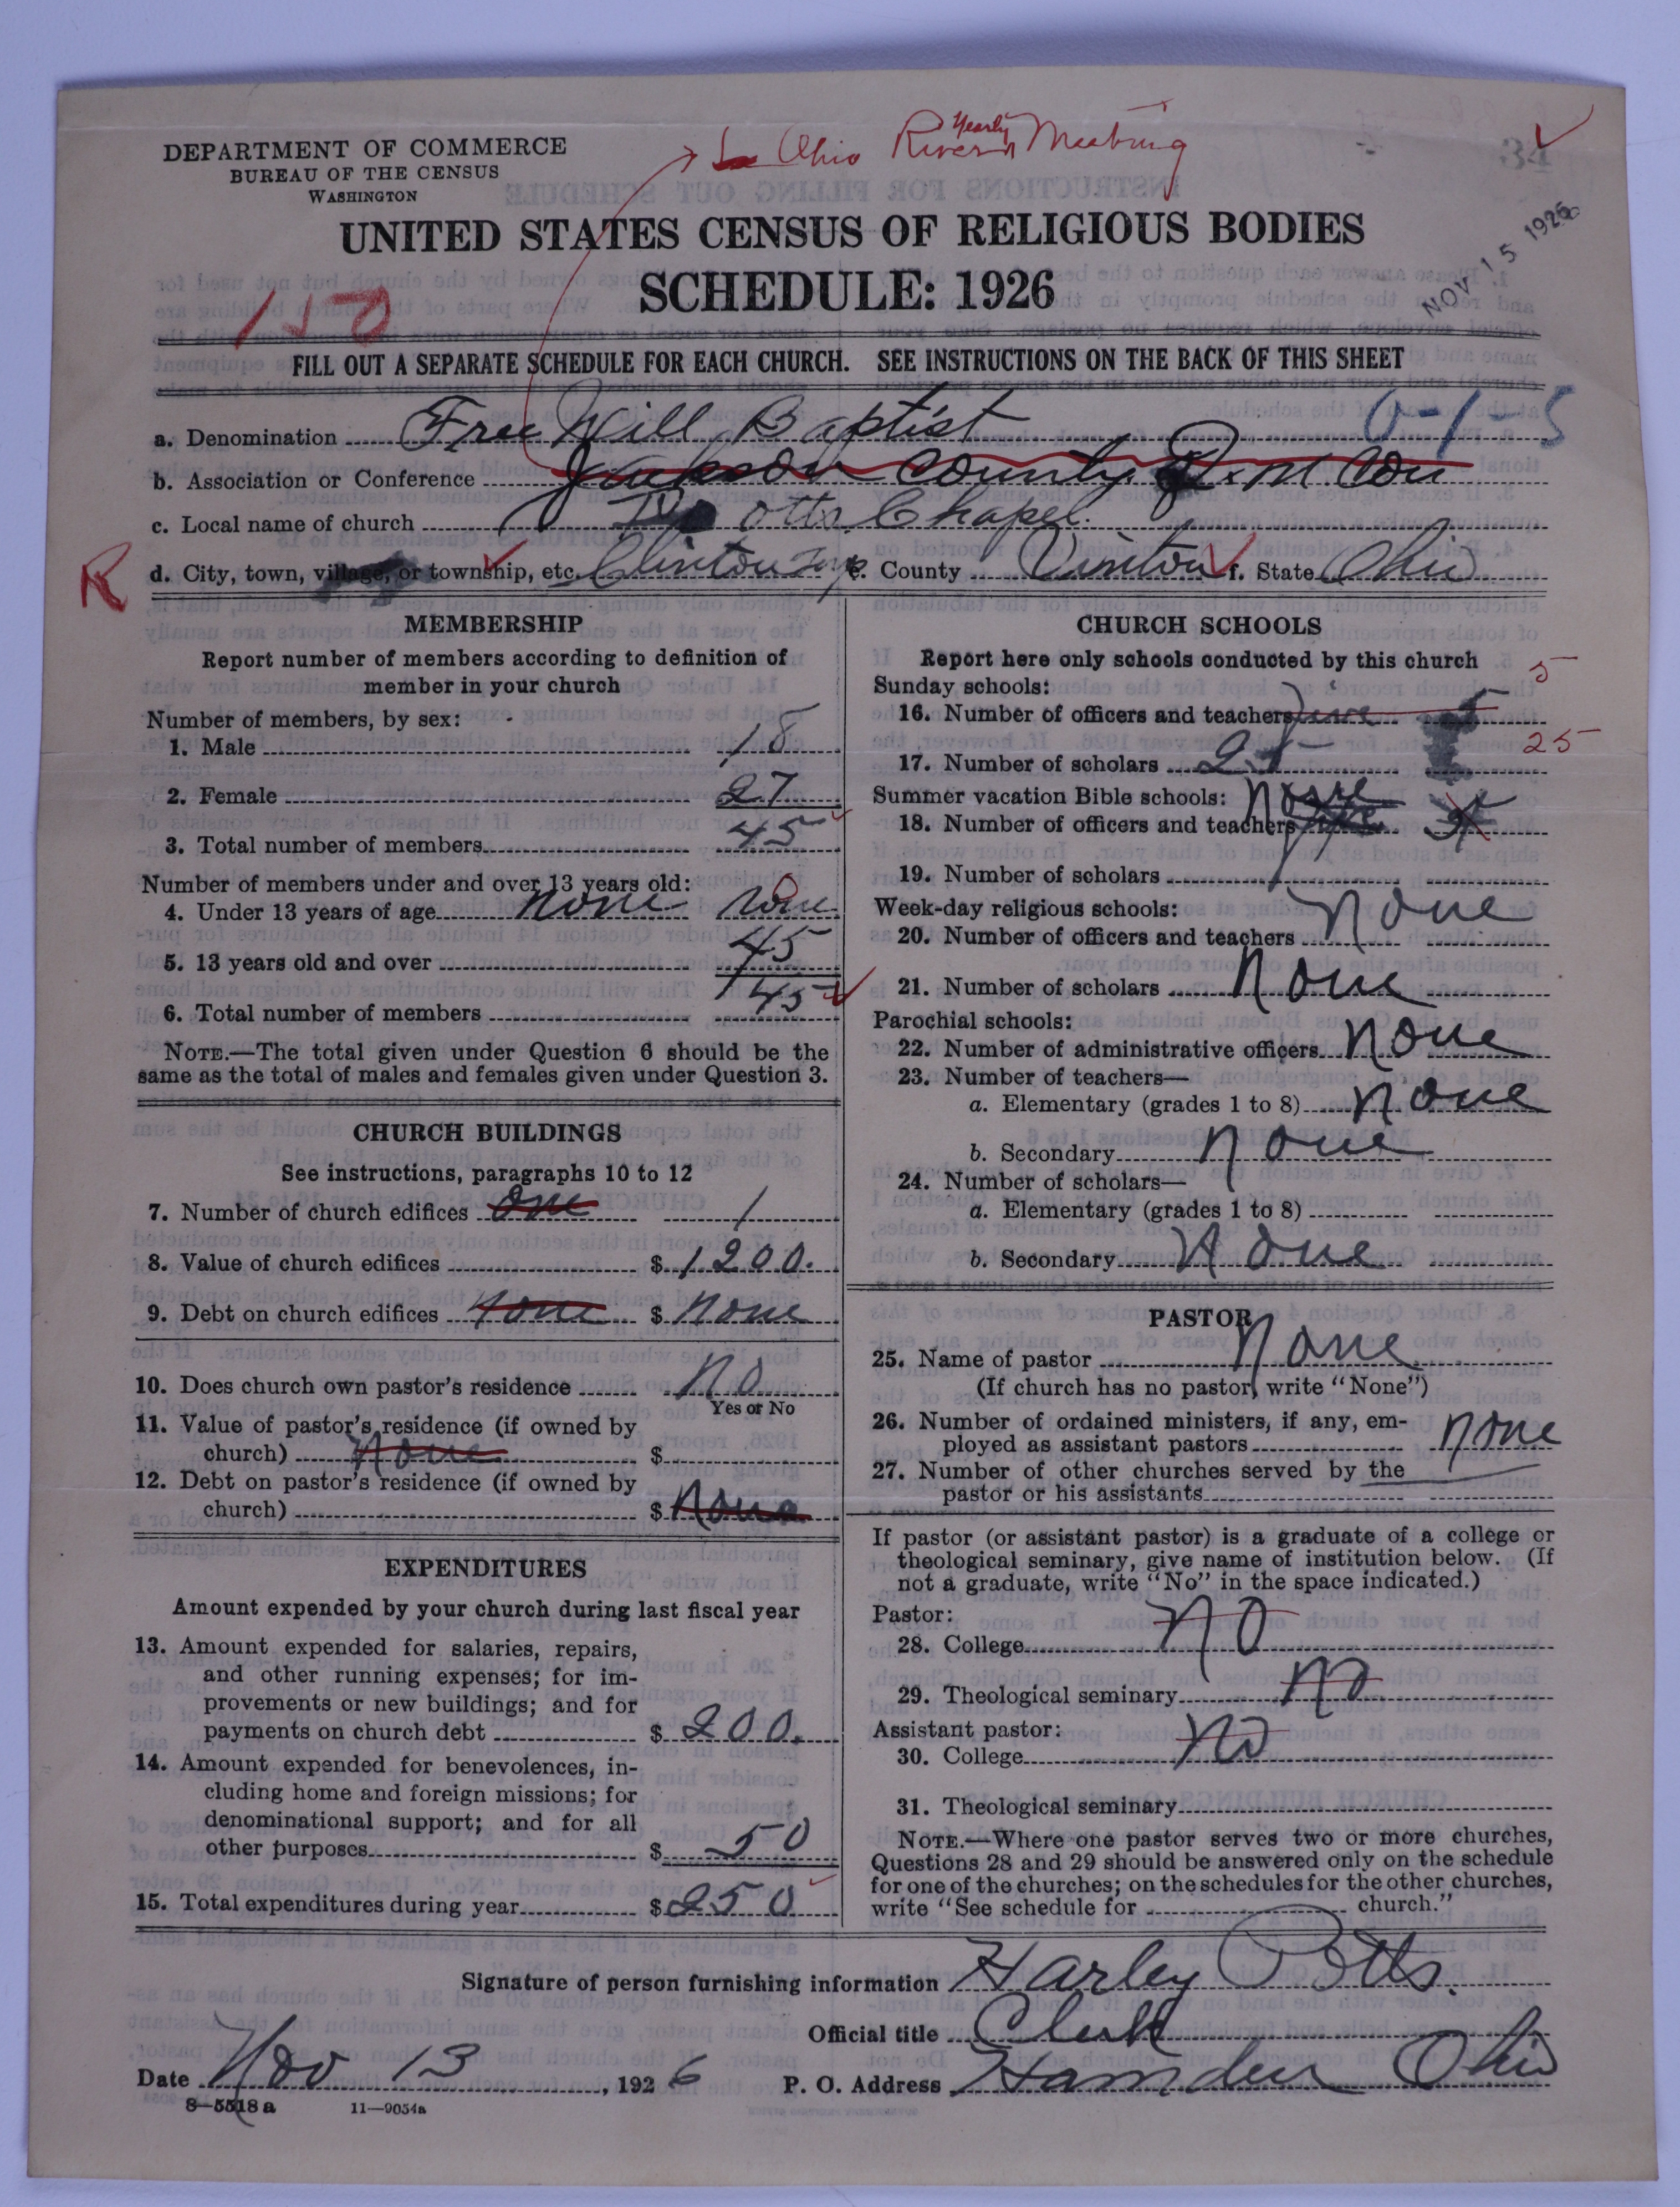 → Ohio River Yearly Meeting
34
DEPARTMENT OF COMMERCE
BUREAU OF THE CENSUS
WASHINGTON
UNITED STATES CENSUS OF RELIGIOUS BODIES
SCHEDULE: 1926
NOV 15 1926
150
FILL OUT A SEPARATE SCHEDULE FOR EACH CHURCH. SEE INSTRUCTIONS ON THE BACK OF THIS SHEET
0-1-5
a. Denomination Free Will Baptist
b. Association or Conference Jackson County Q. M. Con
c. Local name of church Potts Chapel.
R
d. City, town, village, or township, etc. Clinton Twp e. County Vinton f. State Ohio
MEMBERSHIP
Report number of members according to definition of
member in your church
Number of members, by sex:
1. Male 18
2. Female 27
3. Total number of members 45
Number of members under and over 13 years old:
4. Under 13 years of age none none
5. 13 years old and over 45
6. Total number of members 45
NOTE.—The total given under Question 6 should be the
same as the total of males and females given under Question 3.
CHURCH BUILDINGS
See instructions, paragraphs 10 to 12
7. Number of church edifices One 1
8. Value of church edifices $ 1200.
9. Debt on church edifices none $ none
10. Does church own pastor's residence No
Yes or No
11. Value of pastor's residence (if owned by
church) None $
12. Debt on pastor's residence (if owned by
church) $ None
EXPENDITURES
Amount expended by your church during last fiscal year
13. Amount expended for salaries, repairs,
and other running expenses; for im-
provements or new buildings; and for
payments on church debt $ 200.
14. Amount expended for benevolences, in-
cluding home and foreign missions; for
denominational support; and for all
other purposes $ 50
15. Total expenditures during year $ 250
CHURCH SCHOOLS
Report here only schools conducted by this church
Sunday schools:
16. Number of officers and teachers five 5 5
17. Number of scholars 25 25
Summer vacation Bible schools: None
18. Number of officers and teachers
19. Number of scholars
Week-day religious schools:
20. Number of officers and teachers None
21. Number of scholars None
Parochial schools:
22. Number of administrative officers None
23. Number of teachers—
a. Elementary (grades 1 to 8) None
b. Secondary None
24. Number of scholars—
a. Elementary (grades 1 to 8)
b. Secondary None
PASTOR
25. Name of pastor None
(If church has no pastor, write "None")
26. Number of ordained ministers, if any, em-
ployed as assistant pastors none
27. Number of other churches served by the
pastor or his assistants
If pastor (or assistant pastor) is a graduate of a college or
theological seminary, give name of institution below. (If
not a graduate, write "No" in the space indicated.)
Pastor:
28. College No
29. Theological seminary No
Assistant pastor:
30. College No
31. Theological seminary
NOTE.—Where one pastor serves two or more churches,
Questions 28 and 29 should be answered only on the schedule
for one of the churches; on the schedules for the other churches,
write "See schedule for church."
Signature of person furnishing information Harley Potts.
Official title Clerk
Date Nov 13, 1926 P. O. Address Hamden Ohio
8—5518 a 11—9054a